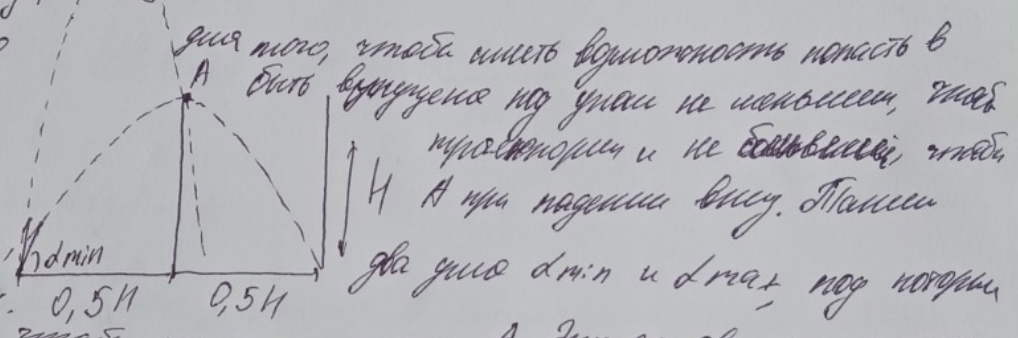 для того, чтобы иметь возможность попасть в
A быть выпущена под углом не меньшим, чтоб
траектории и не большей, чтобы
H A при падении вниз. Таким
два угла αmin и αmax, под которым
αmin
0,5H 0,5H